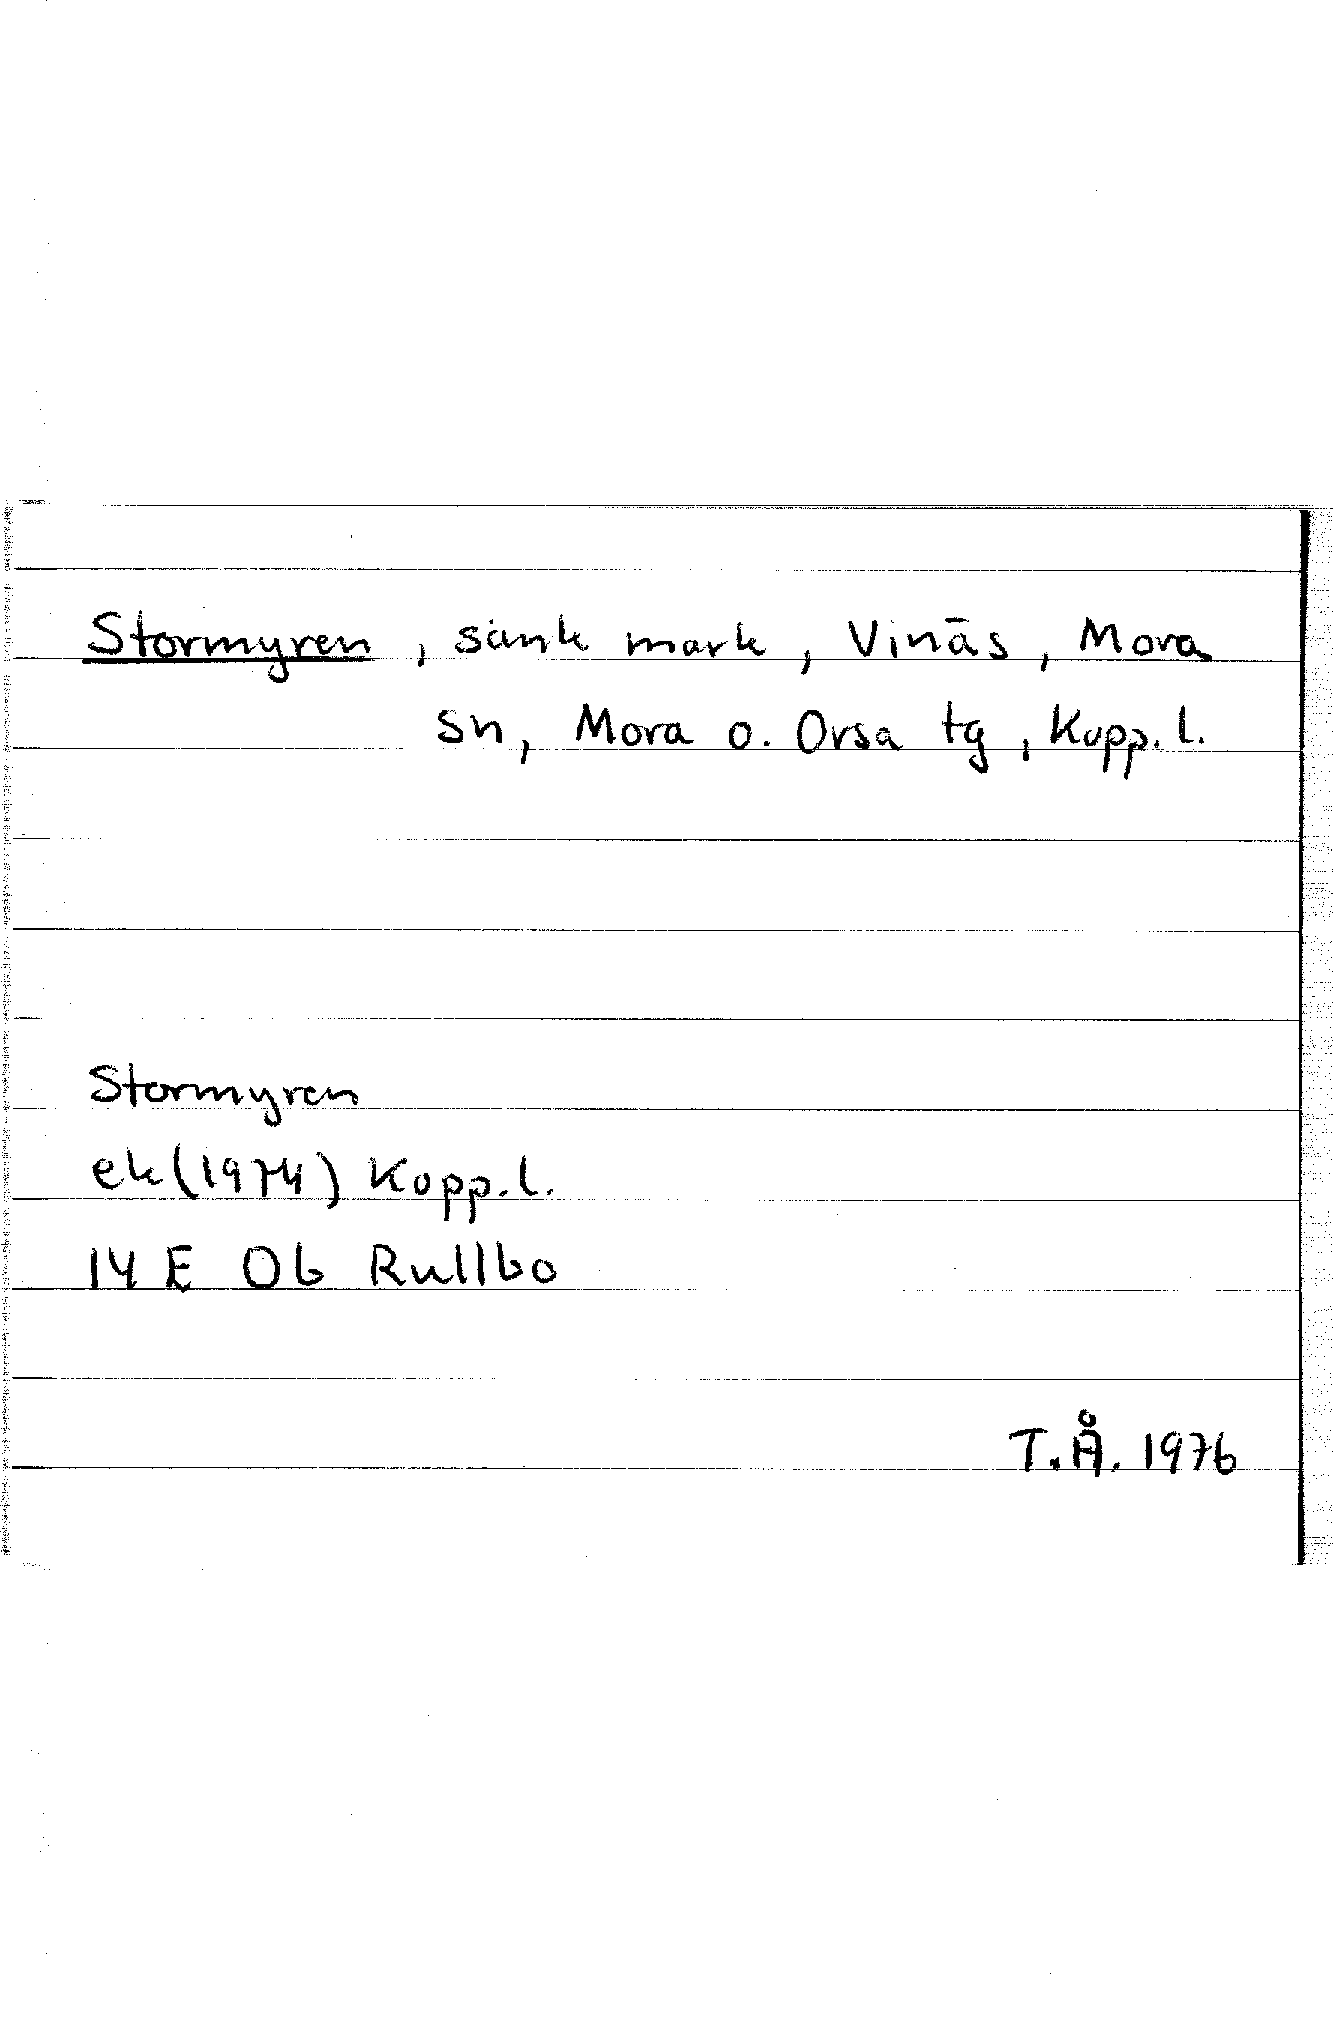 Stormyren, sänk mark, Vinäs, Mora
sn, Mora o. Orsa tg, Kopp. l.
Stormyren
ek (1974) Kopp. l.
14 E 0b Rullbo
T.Å. 1976